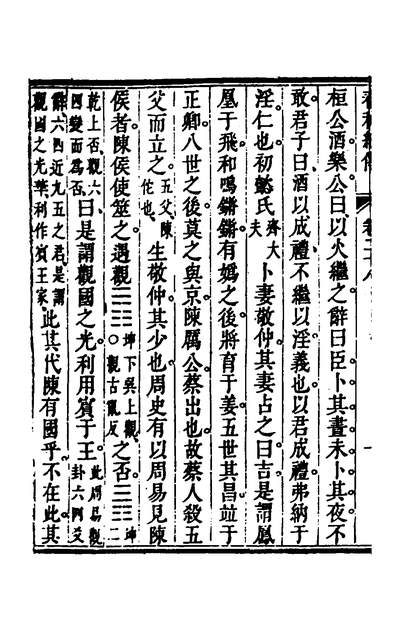 桓公酒樂公曰以火繼之辭曰臣卜其晝未卜其夜不
敢君子曰酒以成禮不繼以淫義也以君成禮弗納于
淫仁也初懿氏齊大夫卜妻敬仲其妻占之曰吉是謂鳳
凰于飛和鳴鏘鏘有媯之後將育于姜五世其昌竝于
正卿八世之後莫之與京陳厲公蔡出也故蔡人殺五
父而立之五父陳佗也生敬仲其少也周史有以周易見陳
侯者陳侯使筮之遇觀☷☴坤下巽上觀○觀古亂反之否☷☰坤下
乾上否觀六四變而為否曰是謂觀國之光利用賓于王此周易觀卦六四爻
辭六四近九五之君是謂觀國之光畢利作賓王家此其代陳有國乎不在此其